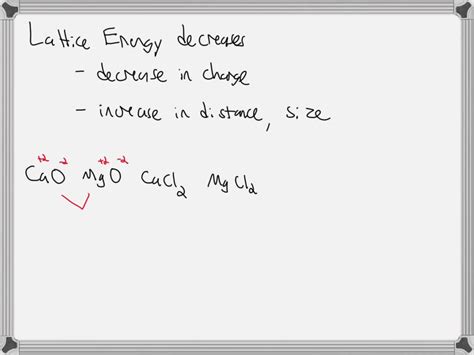 Lattice Energy decreases
- decrease in charge
- increase in distance, size
+2 -2 +2 -2
CaO MgO CaCl2 MgCl2